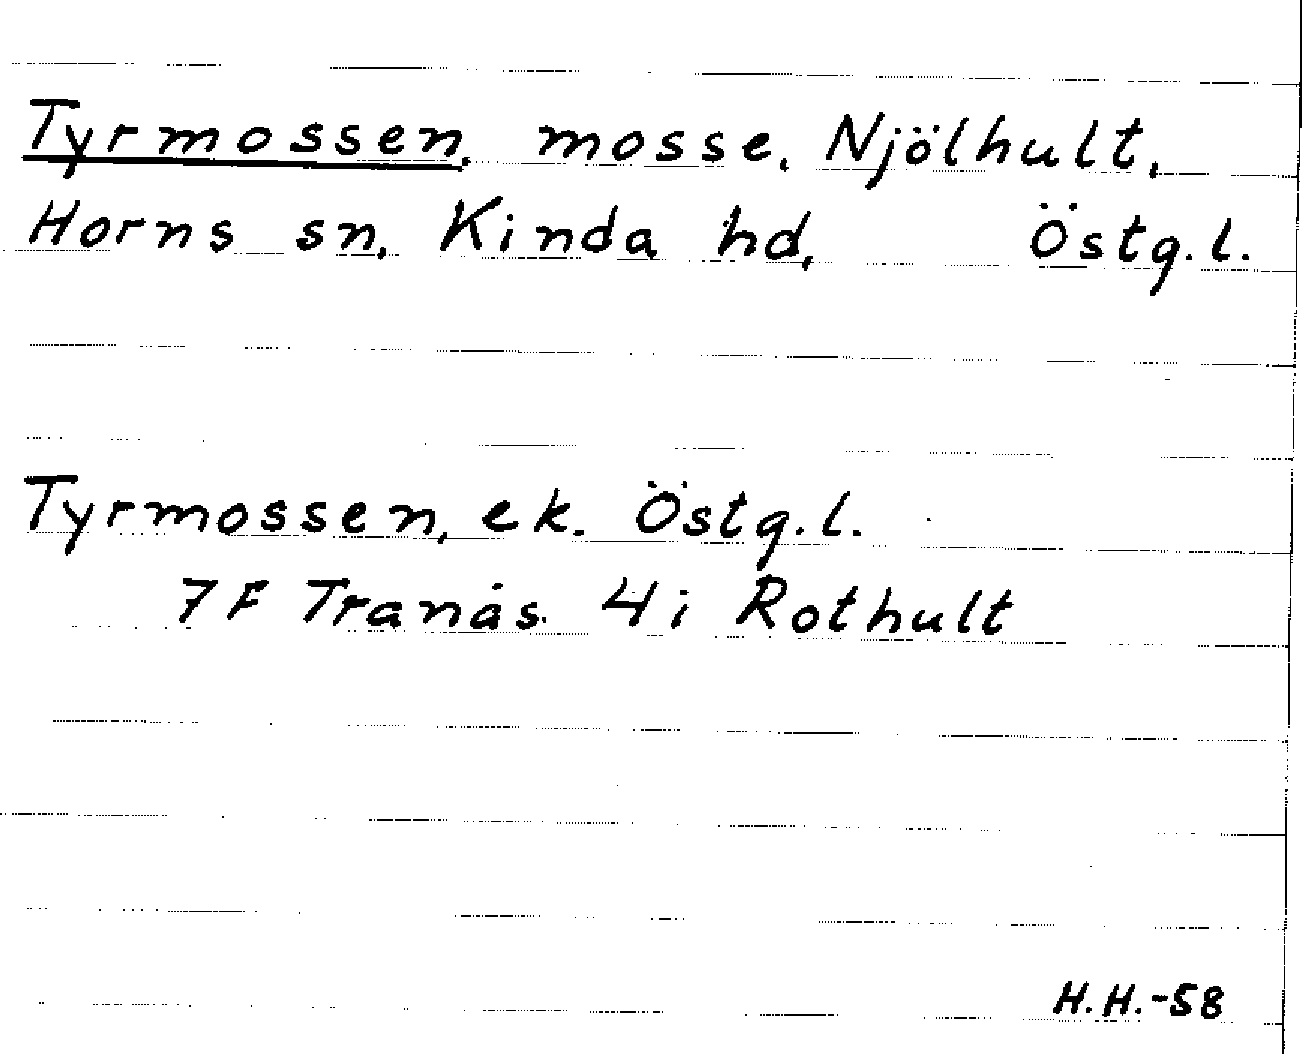 Tyrmossen, mosse, Njölhult,
Horns sn, Kinda hd, Östg.l.
Tyrmossen, ek. Östg.l.
7F Tranås 4i Rothult
H.H.-58